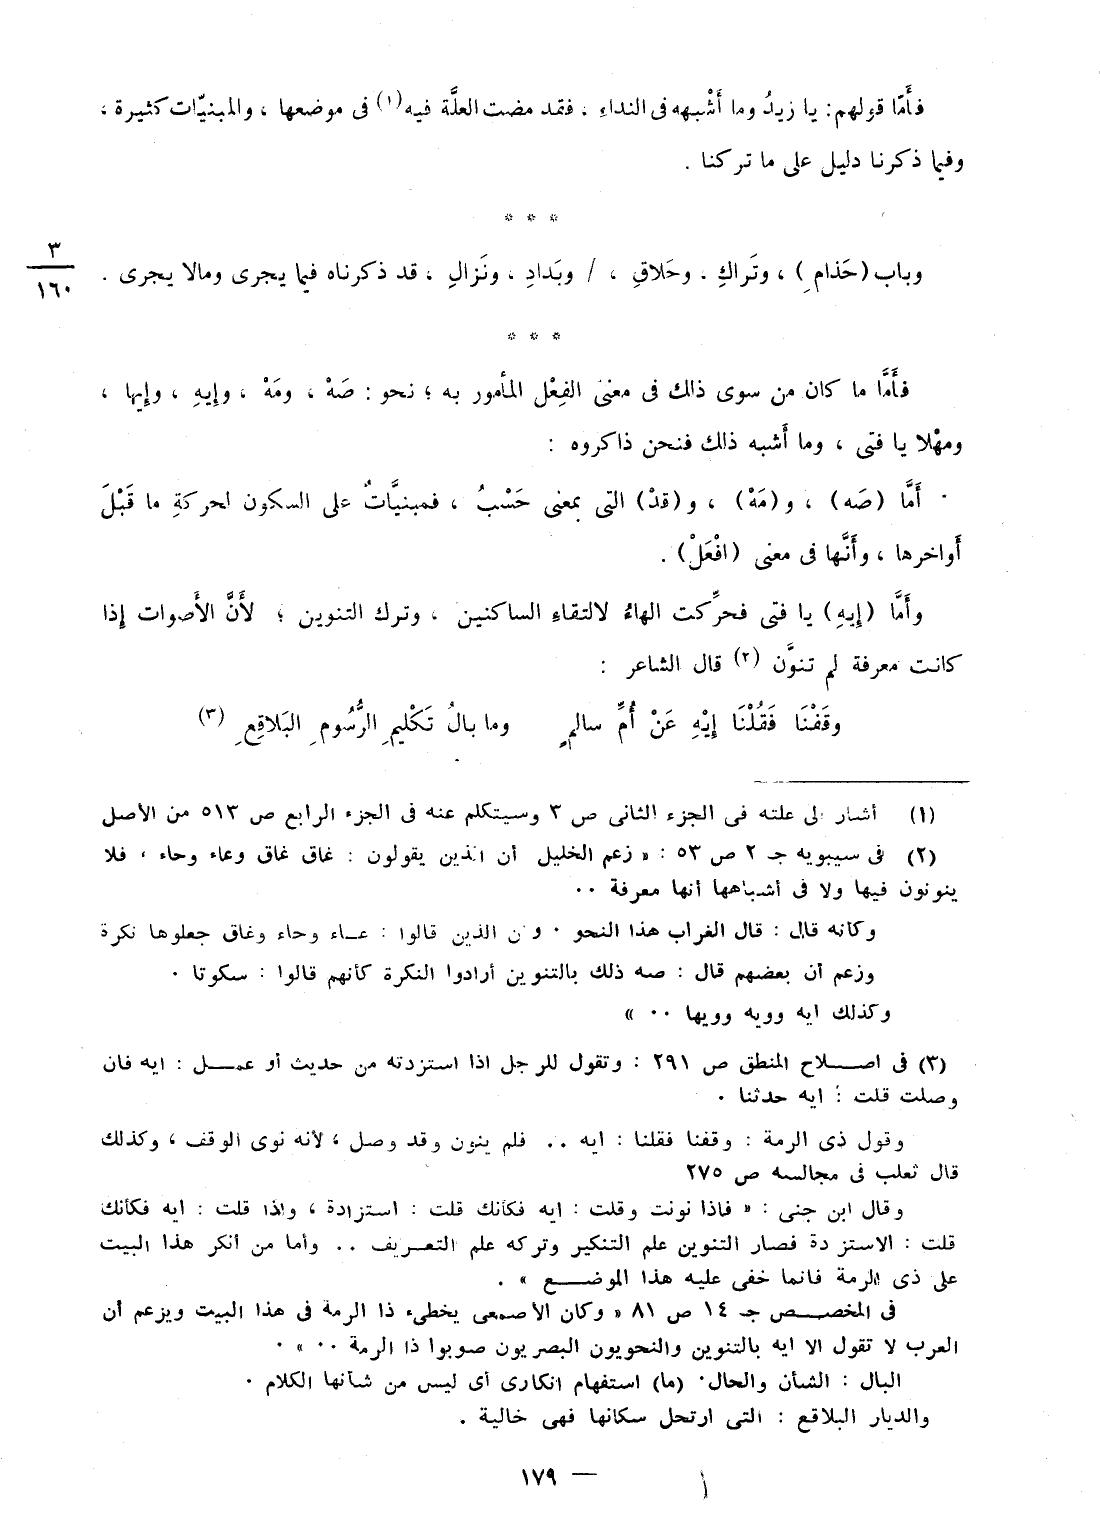 فأَمّا قولهم: يا زيدُ وما أَشْبهه فى النداءِ ، فقد مضت العلَّة فيه(١) فى موضعها ، والمبنيّات كثيرة ،
وفيما ذكرنا دليل على ما تركنا .
* * *
٣
١٦٠
وباب (حَذامِ) ، وتَراكِ ، وحَلاقِ ، / وبَدادِ ، ونَزالِ ، قد ذكرناه فيما يجرى ومالا يجرى .
* * *
فأَمَّا ما كان من سوى ذالك فى معنى الفِعْل المأمور به ؛ نحو : صَهْ ، ومَهْ ، وإيهِ ، وإيها ،
ومهْلا يا فتى ، وما أَشبه ذالك فنحن ذاكروه :
أَمَّا (صَه) ، و(مَهْ) ، و(قدْ) التى بمعنى حَسْبُ ، فمبنيَّاتٌ على السكون لحركةِ ما قَبْلَ
أَواخرها ، وأَنَّها فى معنى (افْعَلْ) .
وأَمَّا (إيهِ) يا فتى فحرِّكت الهاءُ لالتقاءِ الساكنين ، وترك التنوين ؛ لأَنَّ الأَصوات إذا
كانت معرفة لم تنوَّن (٢) قال الشاعر :
وقَفْنَا فَقُلْنَا إيْهِ عَنْ أُمِّ سالمٍ وما بالُ تَكْليمِ الرُّسُومِ البَلاقِعِ (٣)
(١) أشار الى علته فى الجزء الثانى ص ٣ وسيتكلم عنه فى الجزء الرابع ص ٥١٣ من الأصل
(٢) فى سيبويه جـ ٢ ص ٥٣ : « زعم الخليل أن الذين يقولون : غاق غاق وعاء وحاء ، فلا
ينونون فيها ولا فى أشباهها أنها معرفة ..
وكانه قال : قال الغراب هذا النحو . وان الذين قالوا : عـاء وحاء وغاق جعلوها نكرة
وزعم أن بعضهم قال : صه ذلك بالتنوين أرادوا النكرة كأنهم قالوا : سكوتا .
وكذلك ايه وويه وويها .. »
(٣) فى اصـلاح المنطق ص ٢٩١ : وتقول للرجل اذا استزدته من حديث أو عمـل : ايه فان
وصلت قلت : ايه حدثنا .
وقول ذى الرمة : وقفنا فقلنا : ايه .. فلم ينون وقد وصل ، لأنه نوى الوقف ، وكذلك
قال ثعلب فى مجالسه ص ٢٧٥
وقال ابن جنى : « فاذا نونت وقلت : ايه فكأنك قلت : استزادة ، واذا قلت : ايه فكأنك
قلت : الاستزادة فصار التنوين علم التنكير وتركه علم التعـريف .. وأما من أنكر هذا البيت
على ذى الرمة فانما خفى عليه هذا الموضـع » .
فى المخصـص جـ ١٤ ص ٨١ « وكان الأصمعى يخطىء ذا الرمة فى هذا البيت ويزعم أن
العرب لا تقول الا ايه بالتنوين والنحويون البصريون صوبوا ذا الرمة .. » .
البال : الشأن والحال . (ما) استفهام انكارى أى ليس من شأنها الكلام .
والديار البلاقع : التى ارتحل سكانها فهى خالية .
— ١٧٩